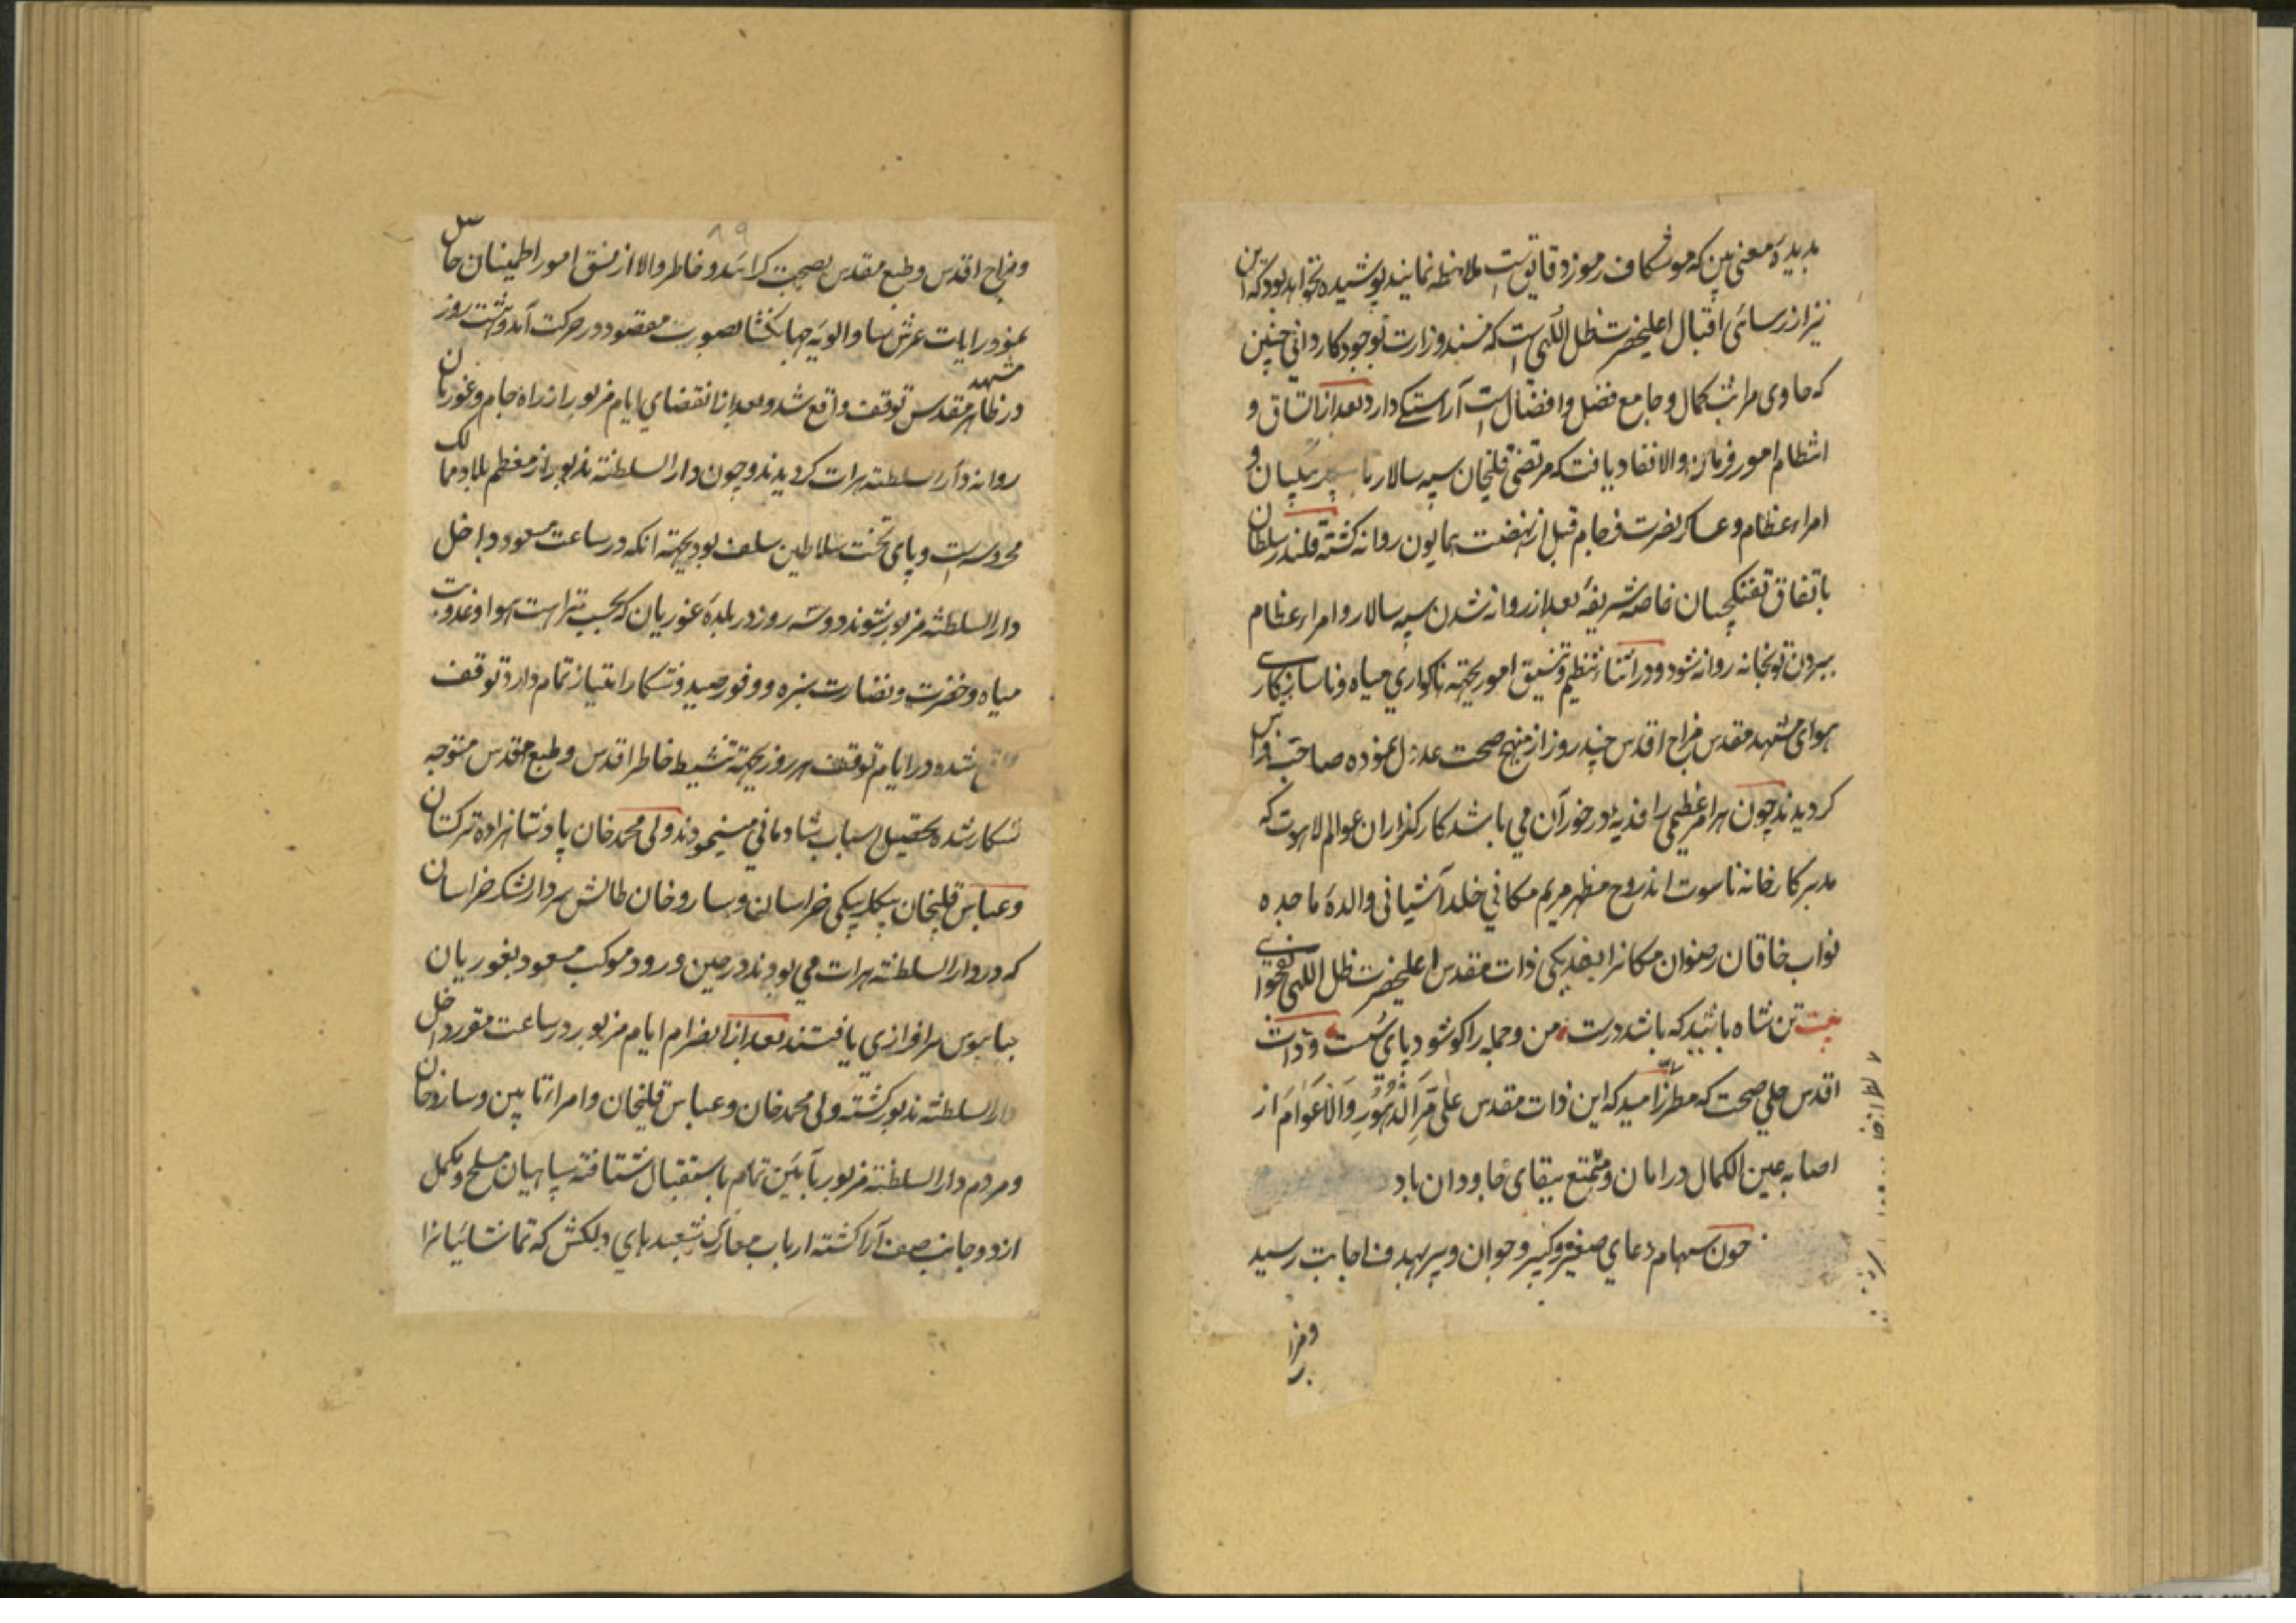 بدیده معنی بین که موشکاف رموز دقایقست ملاحظه نمایند پوشیده نخواهد بود که این
نیز از رسائی اقبال اعلیحضرت ظل اللهی است که مسند وزارت بوجود کاردانی چنین
که حاوی مراتب کمال و جامع فضل و افضال است آراستکی دارد بعد از اتساق و
انتظام امور فرمان والا نفاد یافت که مرتضی قلیخان سپه سالار با بیکلربیکیان و
امراء عظام و عساکر نصرت فرجام قبل از نهضت همایون روانه کشته قلندر سلطان
باتفاق تفنکچیان خاصه شریفه بعد از روانه شدن سپه سالار و امراء عظام
ببردن توپخانه روانه شود و در اثناء تنظیم و تنسیق امور بجهته ناکواری میاه و ناسازکاری
هوای مشهد مقدس مزاج اقدس چند روز از منهج صحت عدول نموده صاحب فراش
کردیدند چون هر امر عظیمی را فدیهٔ در خور آن می باشد کارکذاران عوالم لاهوت که
مدبر کارخانه ناسوت اند روح مظهر مریم مکانی خلد آشیانی والدهٔ ماجده
نواب خاقان رضوان مکانرا بفدیکی ذات مقدس اعلیحضرت ظل اللهی بفحوای
بیت تن شاه باشد که باشد درست من و جمله را کو شود پای سست و ذات
اقدس حلی صحت که مطرزا مید که این ذات مقدس علی مَرِّ الدُهُورِ وَالاَعوَامَ از
اصابه عین الکمال در امان و متمتع ببقای جاودان باد
چون سهام دعای صغیر و کبیر و جوان و پیر بهدف اجابت رسید
و مزا
۸۹
و مزاج اقدس و طبع مقدس بصحت کرائید و خاطر والا از نسق امور اطمینان حاصل
نمود رایات عرش سا و الویهٔ جهانکشا بصوب مقصود در حرکت آمد و هشت روز
در ظاهر مشهد مقدس توقف واقع شد و بعد از انقضای ایام مزبور از راه جام و غوریان
روانه دار السلطنه هرات کردیدند و چون دار السلطنه مذبور از معظم بلاد ممالک
محروسه است و پای تخت سلاطین سلف بود بجهته انکه در ساعت مسعود داخل
دار السلطنه مزبور شوند دو سه روز در بلدهٔ غوریان که بحسب نزاهت هوا و عذوبت
میاه و خضرت و نضارت سبزه و وفور صید و شکار امتیاز تمام دارد توقف
واقع شده در ایام توقف هر روز بجهته تنشیط خاطر اقدس و طبع مقدس متوجه
شکار شده بتحصیل اسباب شادمانی مینمودند و ولی محمد خان پادشاهزاده ترکستان
و عباس قلیخان بیکلربیکی خراسان و ساروخان طالش سردار لشکر خراسان
که در دار السلطنه هرات می بودند در حین ورود موکب مسعود بغوریان
بپابوس سرافرازی یافتند بعد از انصرام ایام مزبور در ساعت مقرر داخل
دار السلطنه مذبور کشته ولی محمد خان و عباس قلیخان و امراء تابین و ساروخان
و مردم دار السلطنه مزبور بآئین تمام باستقبال شتافته سپاهیان مسلح و مکمل
از دو جانب صف آرا کشته ارباب معارک شعبدهای دلکش که تماشائیانرا